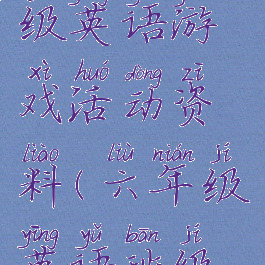 级英语游
xì huó dòng zī
戏活动资
liào liù nián jí
料(六年级
yīng yǔ bān jí
英语班级